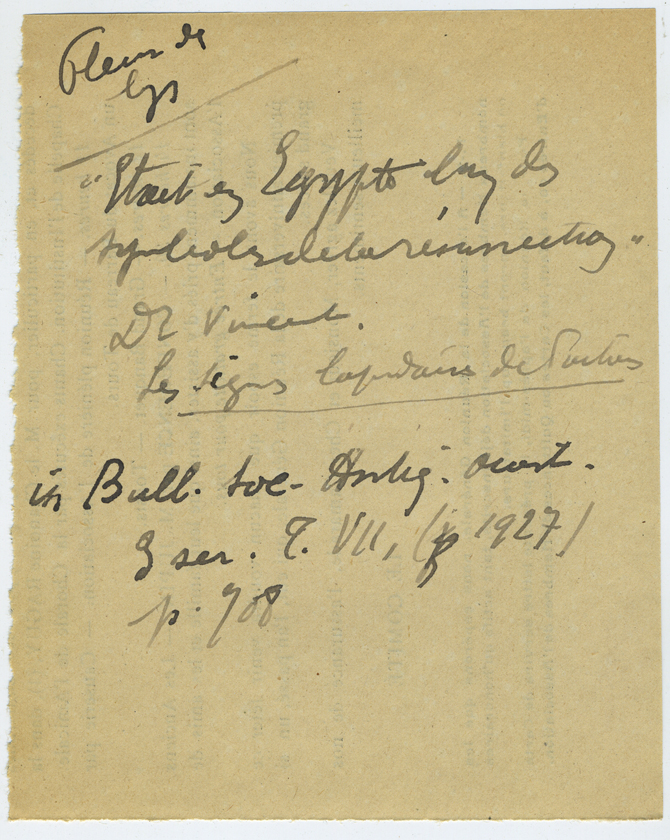 Fleur de
lys
"Etait en Egypte l'un des
symboles de la résurrection"
Dr Vincent.
Les signes lapidaires de Poitiers
in Bull. Soc. Antiq. ouest.
3 ser. T. VII, ( 1927)
p. 708